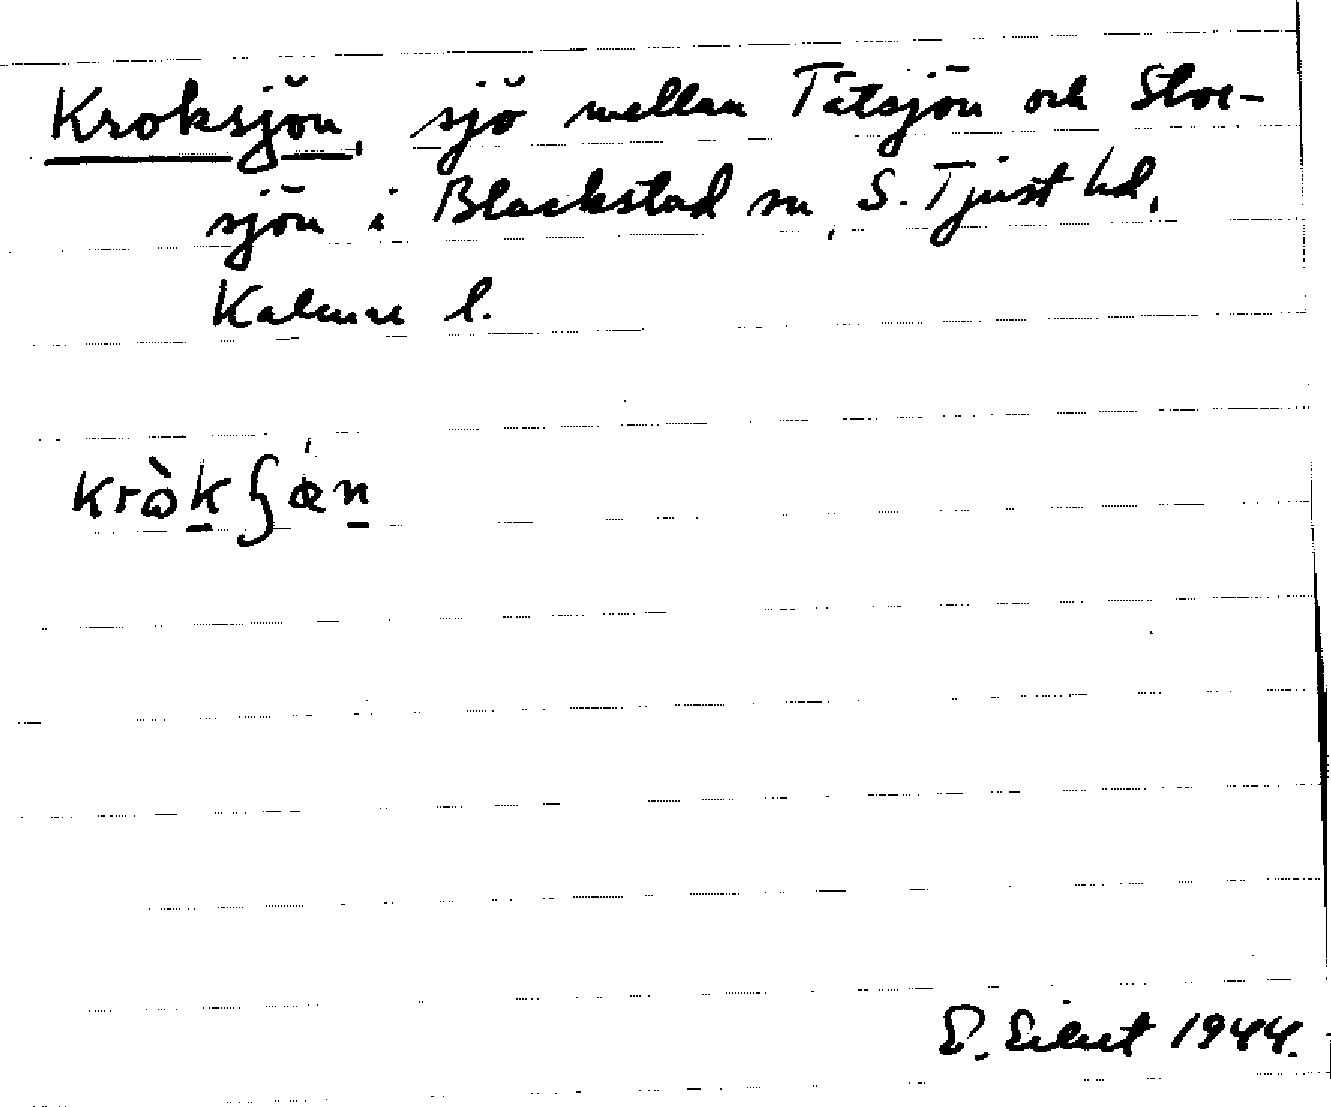 Kroksjön, sjö mellan Tätsjön och Stor-
sjön i Blackstad sn, S. Tjust hd,
Kalmar l.
kròkʃǿn
1944.